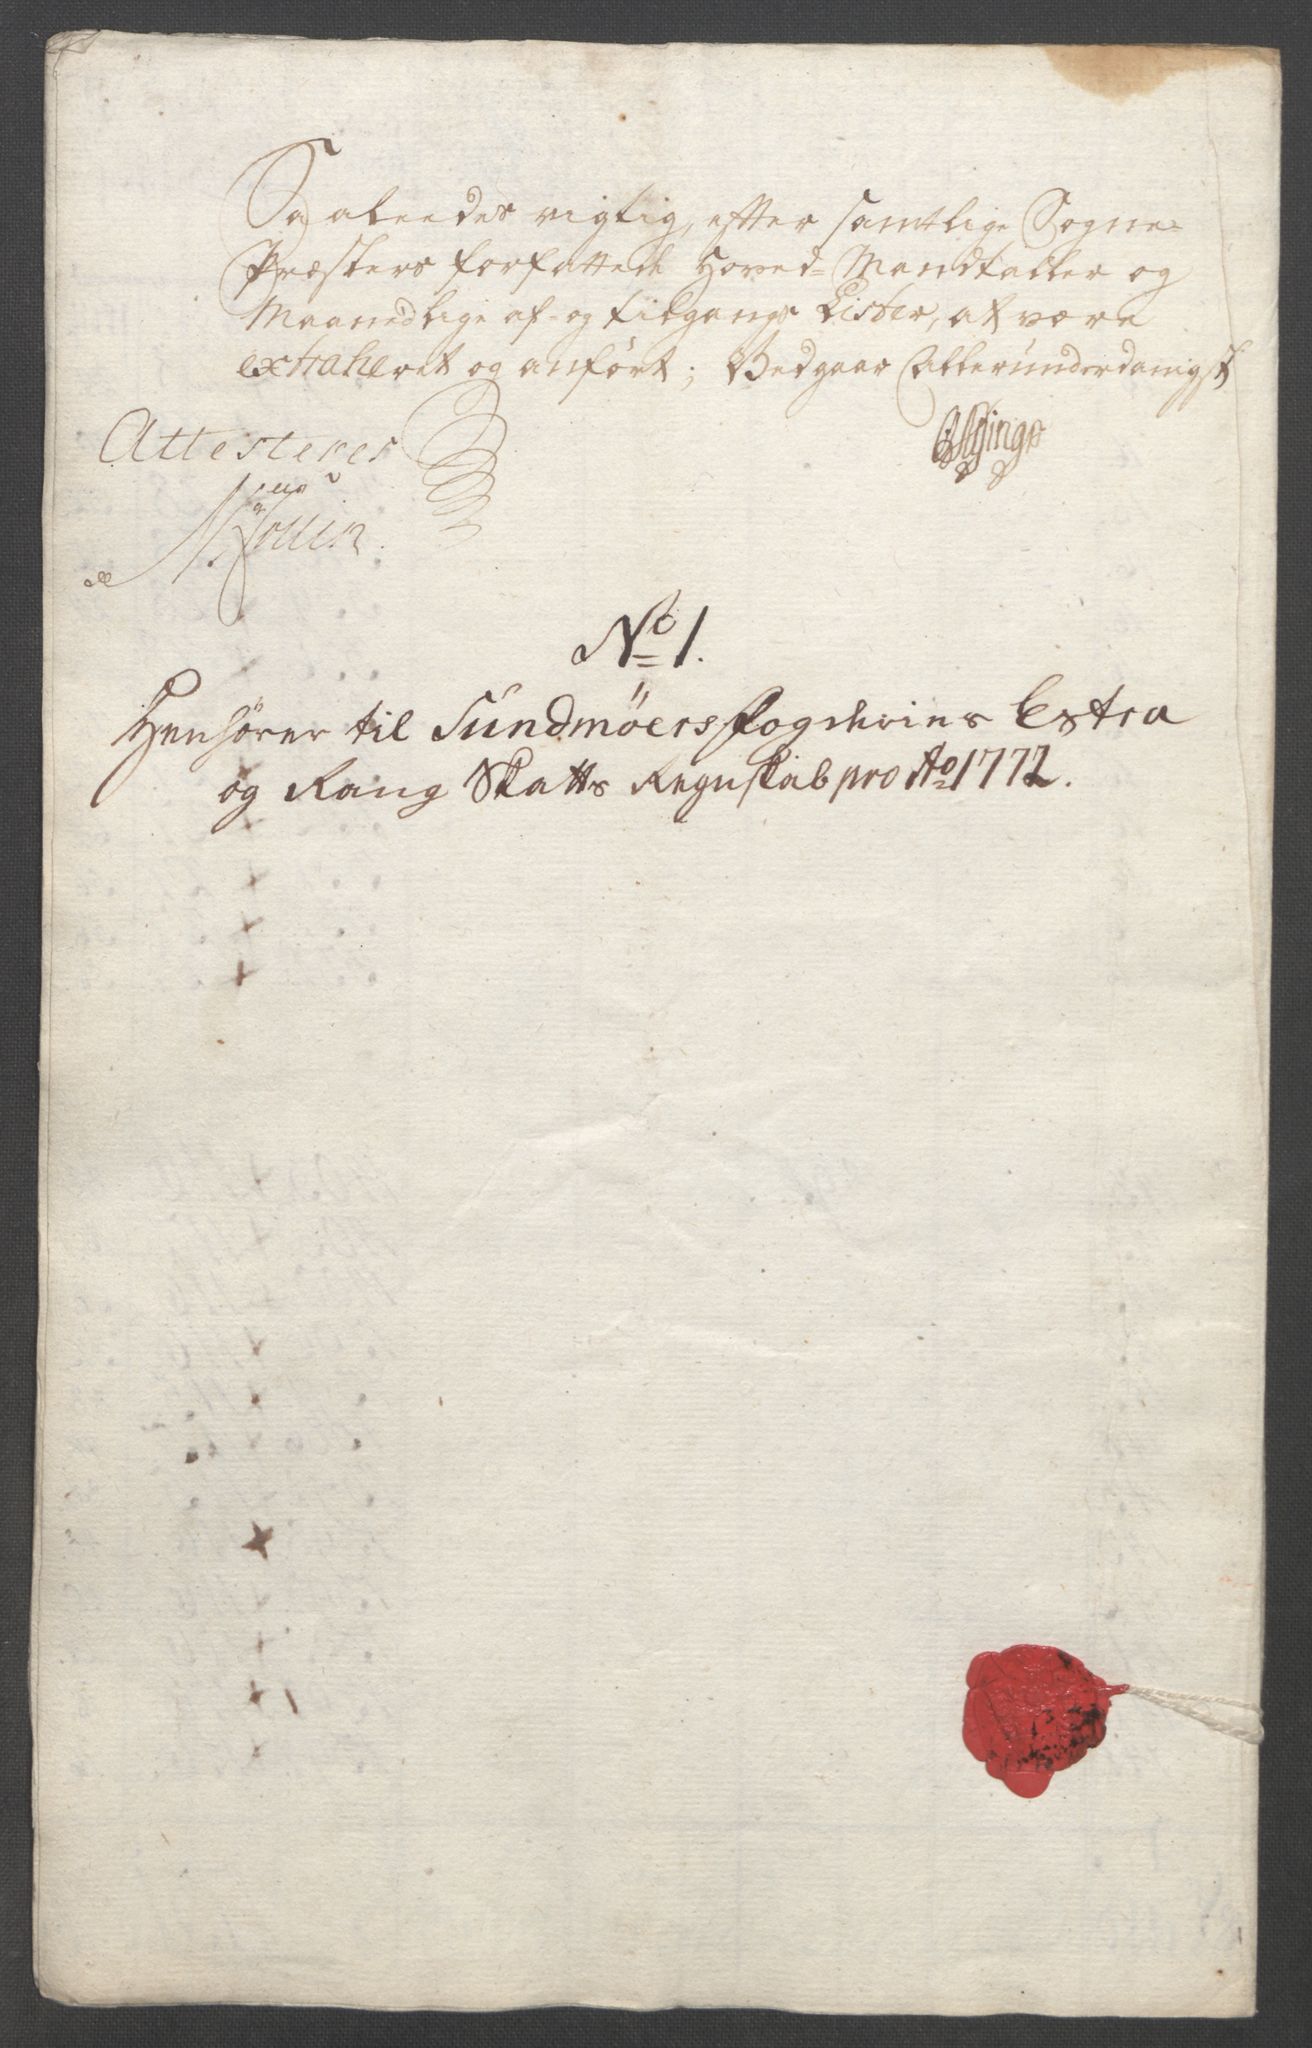 Saaleedes rigtig, efter samtlige Sogne=
Præsters forfattede Hoved=Mandtaller og
Maanedlige af- og tilgangs Lister, at være
extraheret og anført; Vedgaar Allerunderdanigst
Attesteres
No 1.
Henhörer til Sündmöers fogderies Extra
og Rang Skatts Regnskab pro Ao 1772.